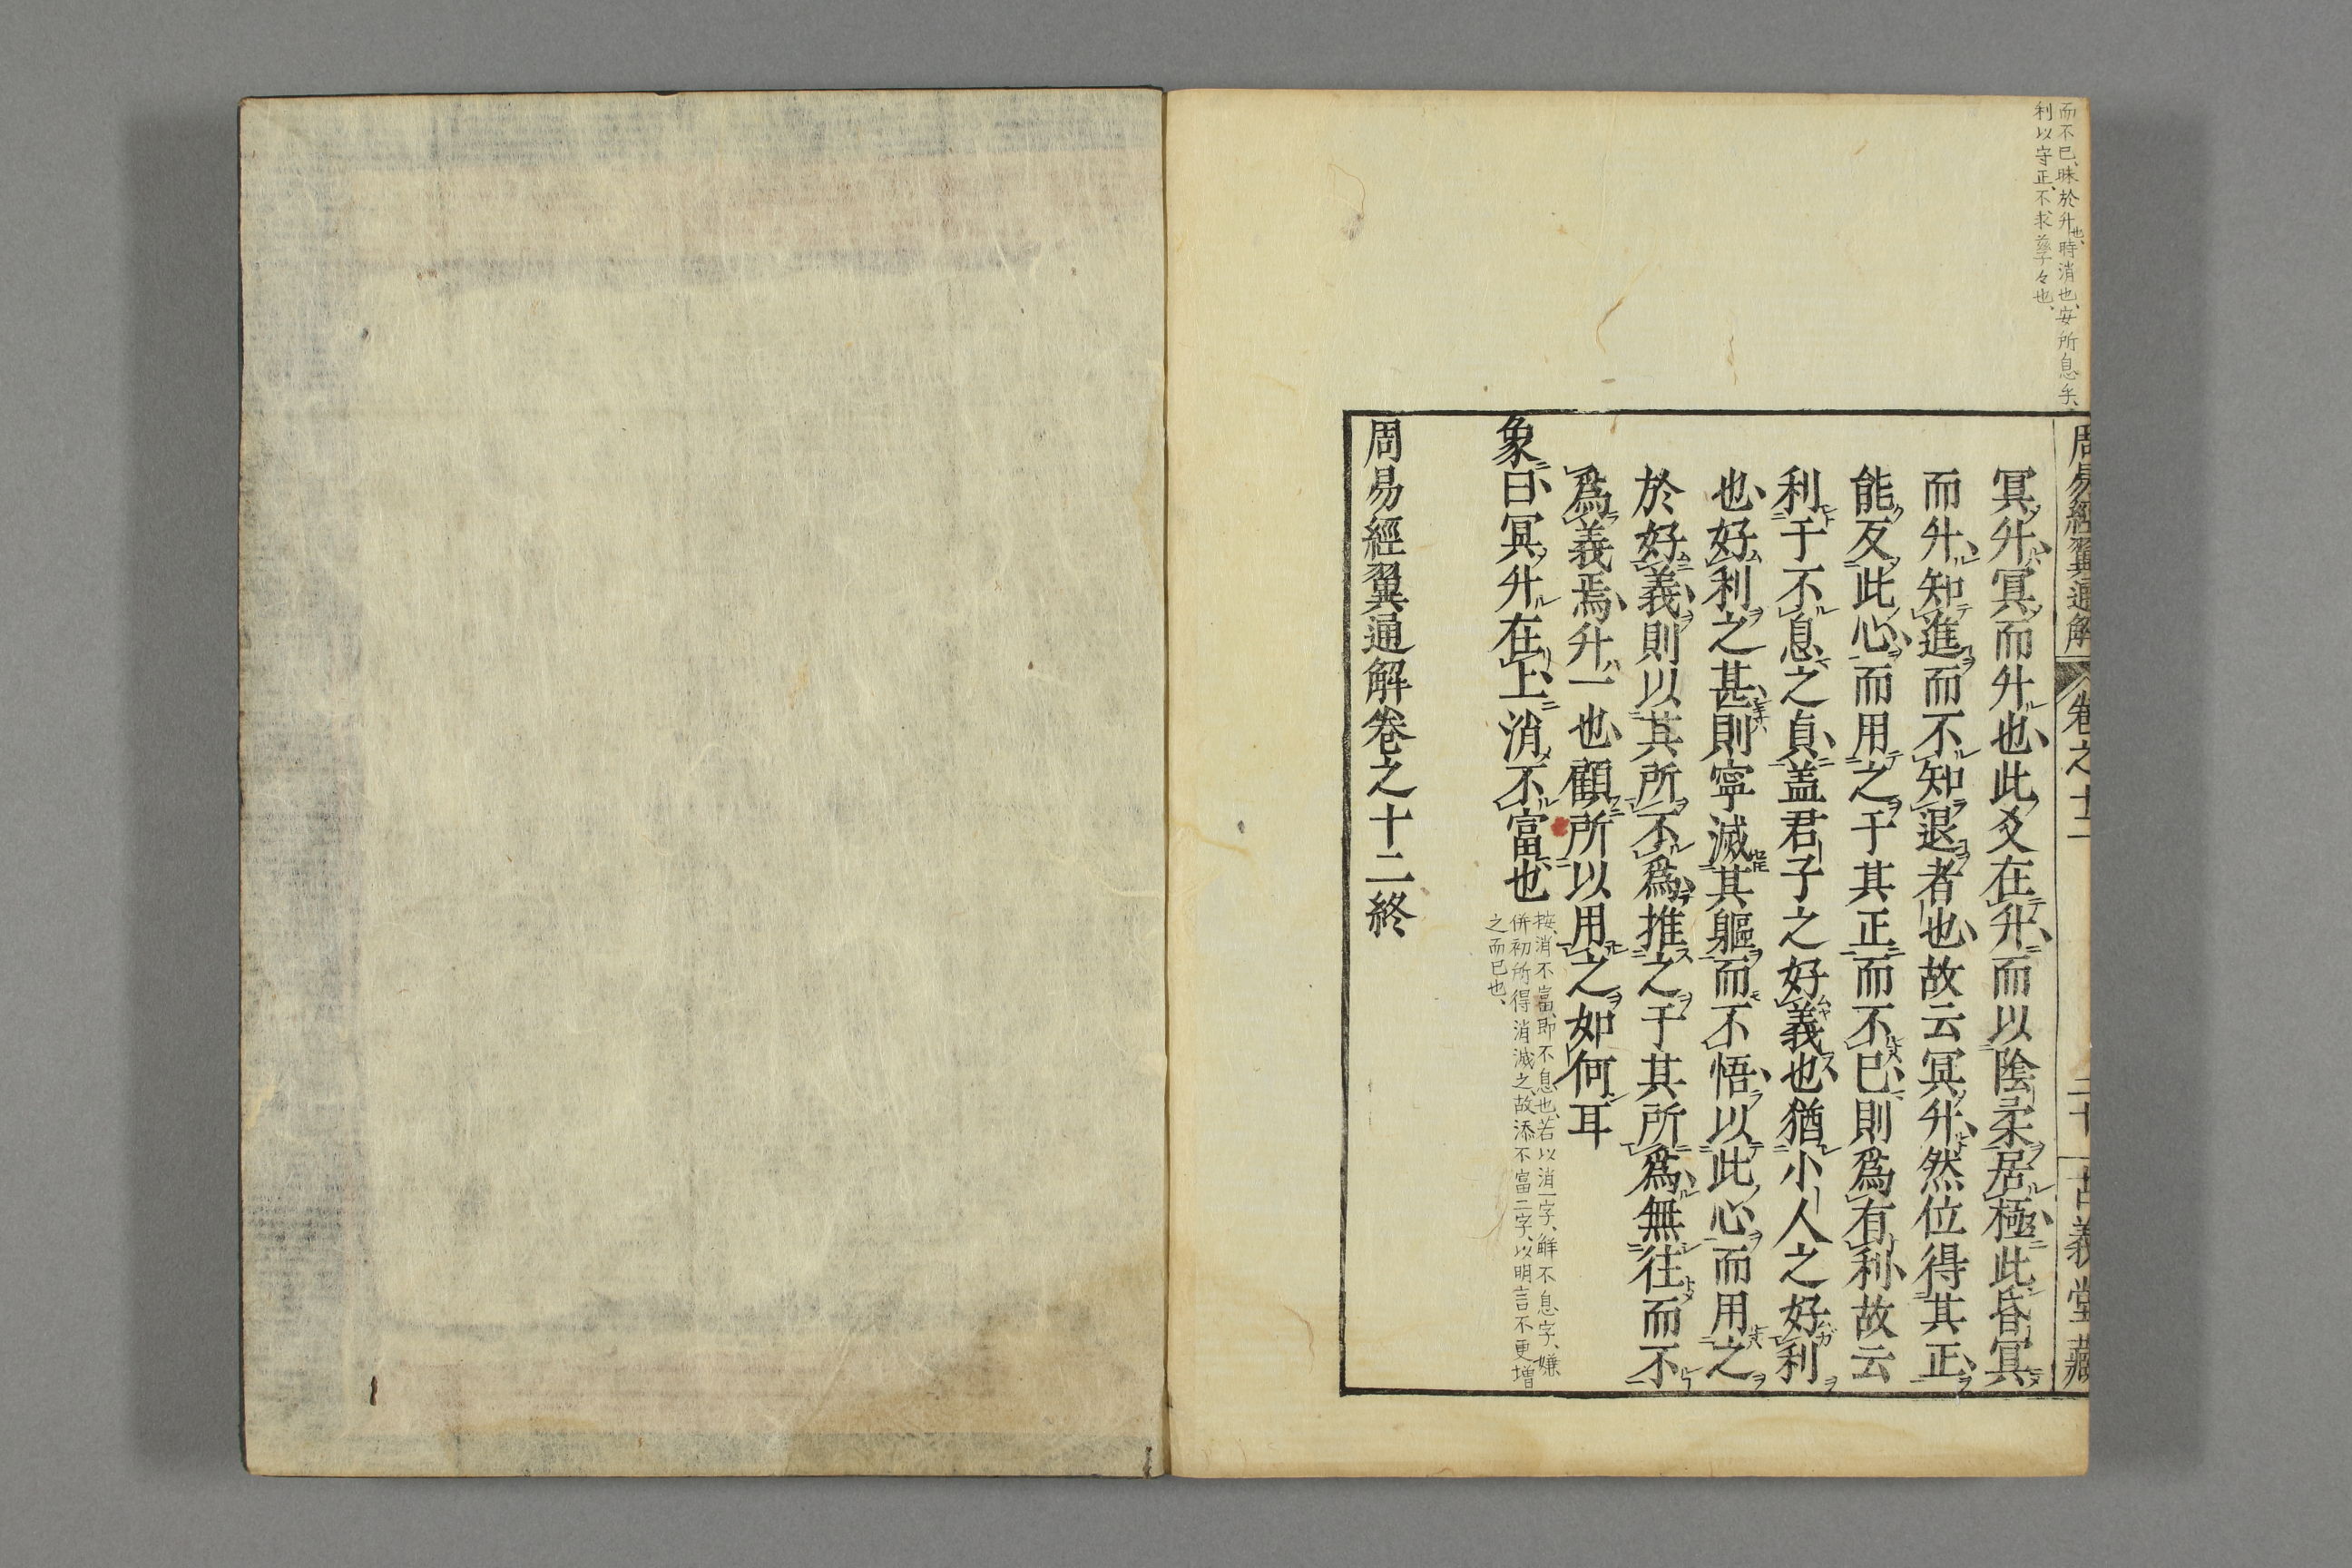 而不已、昧於升也、時消也、安所息乎、
利以守正、不求孳々也、
周易經翼通解 卷之十二 二十 古義堂藏
冥升冥而升也此爻在升而以陰柔居極此昏冥
而升知進而不知退者也故云冥升然位得其正
能反此心而用之于其正而不已則爲有利故云
利于不息之貞盖君子之好義也猶小人之好利
也好利之甚則寧滅其軀而不悟以此心而用之
於好義則以其所不爲推之于其所爲無往而不
爲義焉升一也顧所以用之如何耳
象曰冥升在上消不富也
按、消不富、即不息也、若以消一字、解不息字、嫌
併初所得消滅之、故添不富二字、以明言不更増
之而已也、
周易經翼通解卷之十二終